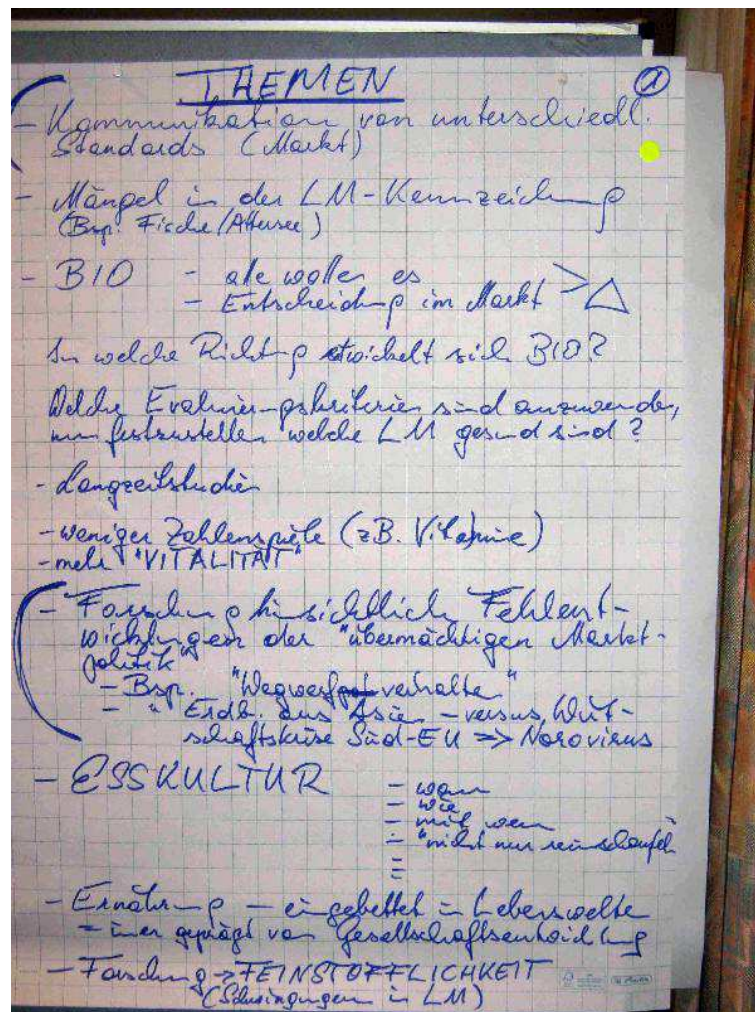 THEMEN
1
- Kommunikation von unterschiedl.
Standards (Markt)
- Mängel in der LM-Kennzeichnung
(Bsp. Fische/Attersee)
- BIO - alle wollen es
- Entscheidung im Markt > △
In welche Richtung entwickelt sich BIO?
Welche Evaluierungskriterien sind anzuwenden,
um festzustellen welche LM gesund sind?
- Langzeitstudien
- weniger Zahlenspiele (zB. Vitamine)
- mehr "VITALITÄT"
- Forschung hinsichtlich Fehlent-
wicklungen der "übermächtigen Markt-
politik"
- Bsp. "Wegwerfverhalten"
- " Erdb. aus Asien - versus Wirt-
schaftskrise Süd-EU => Norovirus
- ESSKULTUR - wann
- wie
- mit wem
- "nicht nur reinschaufeln
-
-
- Ernährung - eingebettet in Lebenswelten
- immer geprägt von Gesellschaftsentwicklung
- Forschung → FEINSTOFFLICHKEIT
(Schwingungen in LM)